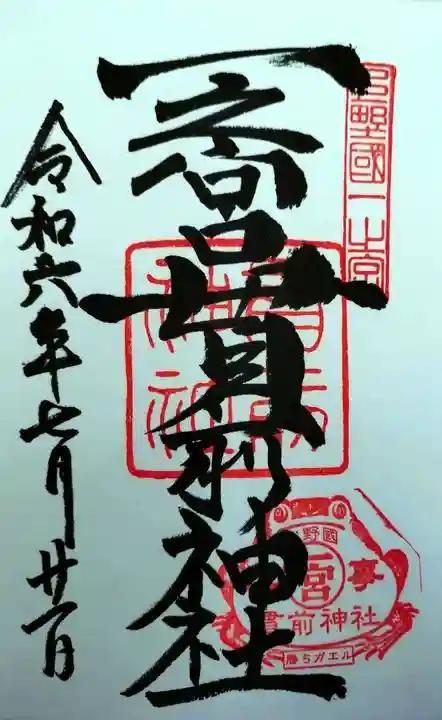 上野國一之宮
一之宮貫前神社
令和六年七月廿一日
貫前神社
野國
一宮
事
貫前神社
勝ちガエル